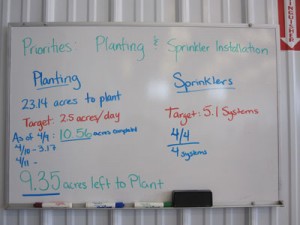 Priorities: Planting & Sprinkler Installation
Planting
23.14 acres to plant
Target: 25 acres/day
As of 4/9: 10.56 acres completed
4/10 - 3.17
4/11 -
9.35 acres left to Plant
Sprinklers
Target: 5.1 Systems
4/4
4 systems